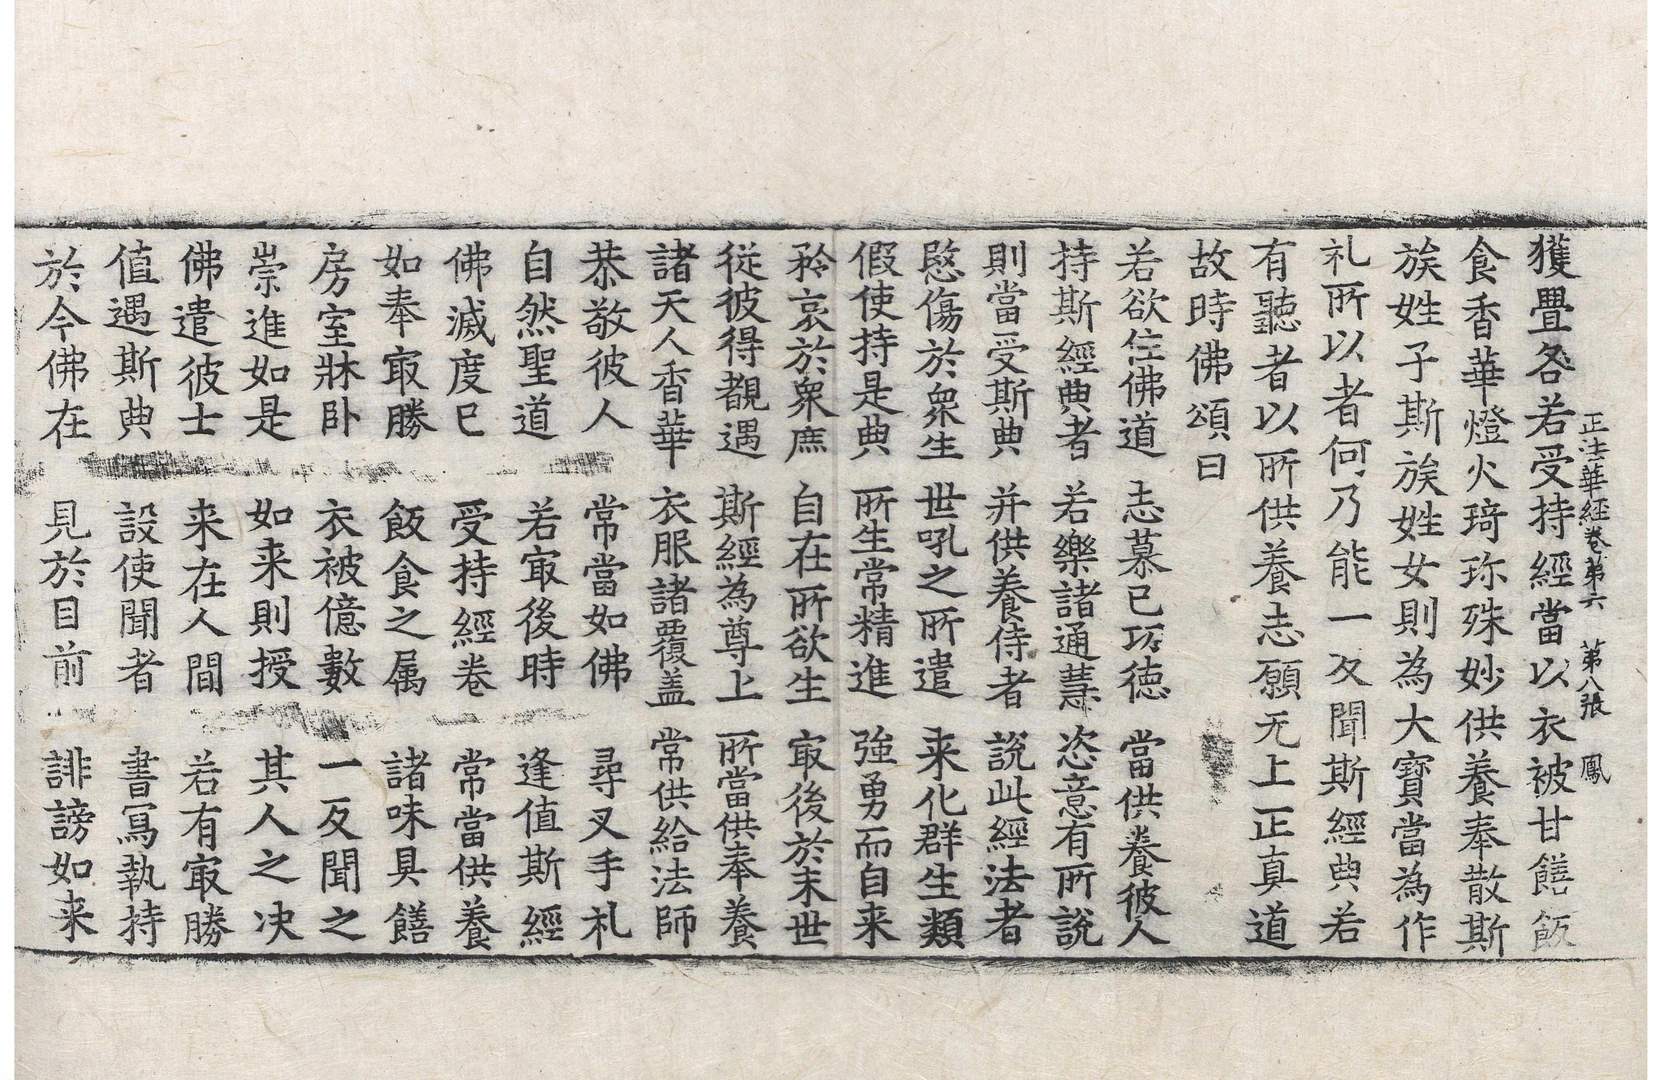 正法華經卷第六 第八張 鳳
獲疊各若受持經當以衣被甘饍飯
食香華燈火琦珎殊妙供養奉散斯
族姓子斯族姓女則為大寶當為作
礼所以者何乃能一反聞斯經典若
有聽者以所供養志願无上正真道
故時佛頌曰
若欲住佛道 志慕己功徳 當供養彼人
持斯經典者 若樂諸通慧 恣意有所說
則當受斯典 并供養侍者 說此經法者
愍傷於衆生 世吼之所遣 来化群生類
假使持是典 所生常精進 強勇而自来
矜哀於衆庶 自在所欲生 㝡後於末世
從彼得覩遇 斯經為尊上 所當供奉養
諸天人香華 衣服諸覆盖 常供給法師
恭敬彼人 常當如佛 尋叉手礼
自然聖道 若㝡後時 逢值斯經
佛滅度已 受持經卷 常當供養
如奉㝡勝 飯食之属 諸味具饍
房室牀卧 衣被億數 一反聞之
崇進如是 如来則授 其人之决
佛遣彼士 来在人間 若有㝡勝
值遇斯典 設使聞者 書寫執持
於今佛在 見於目前 誹謗如来